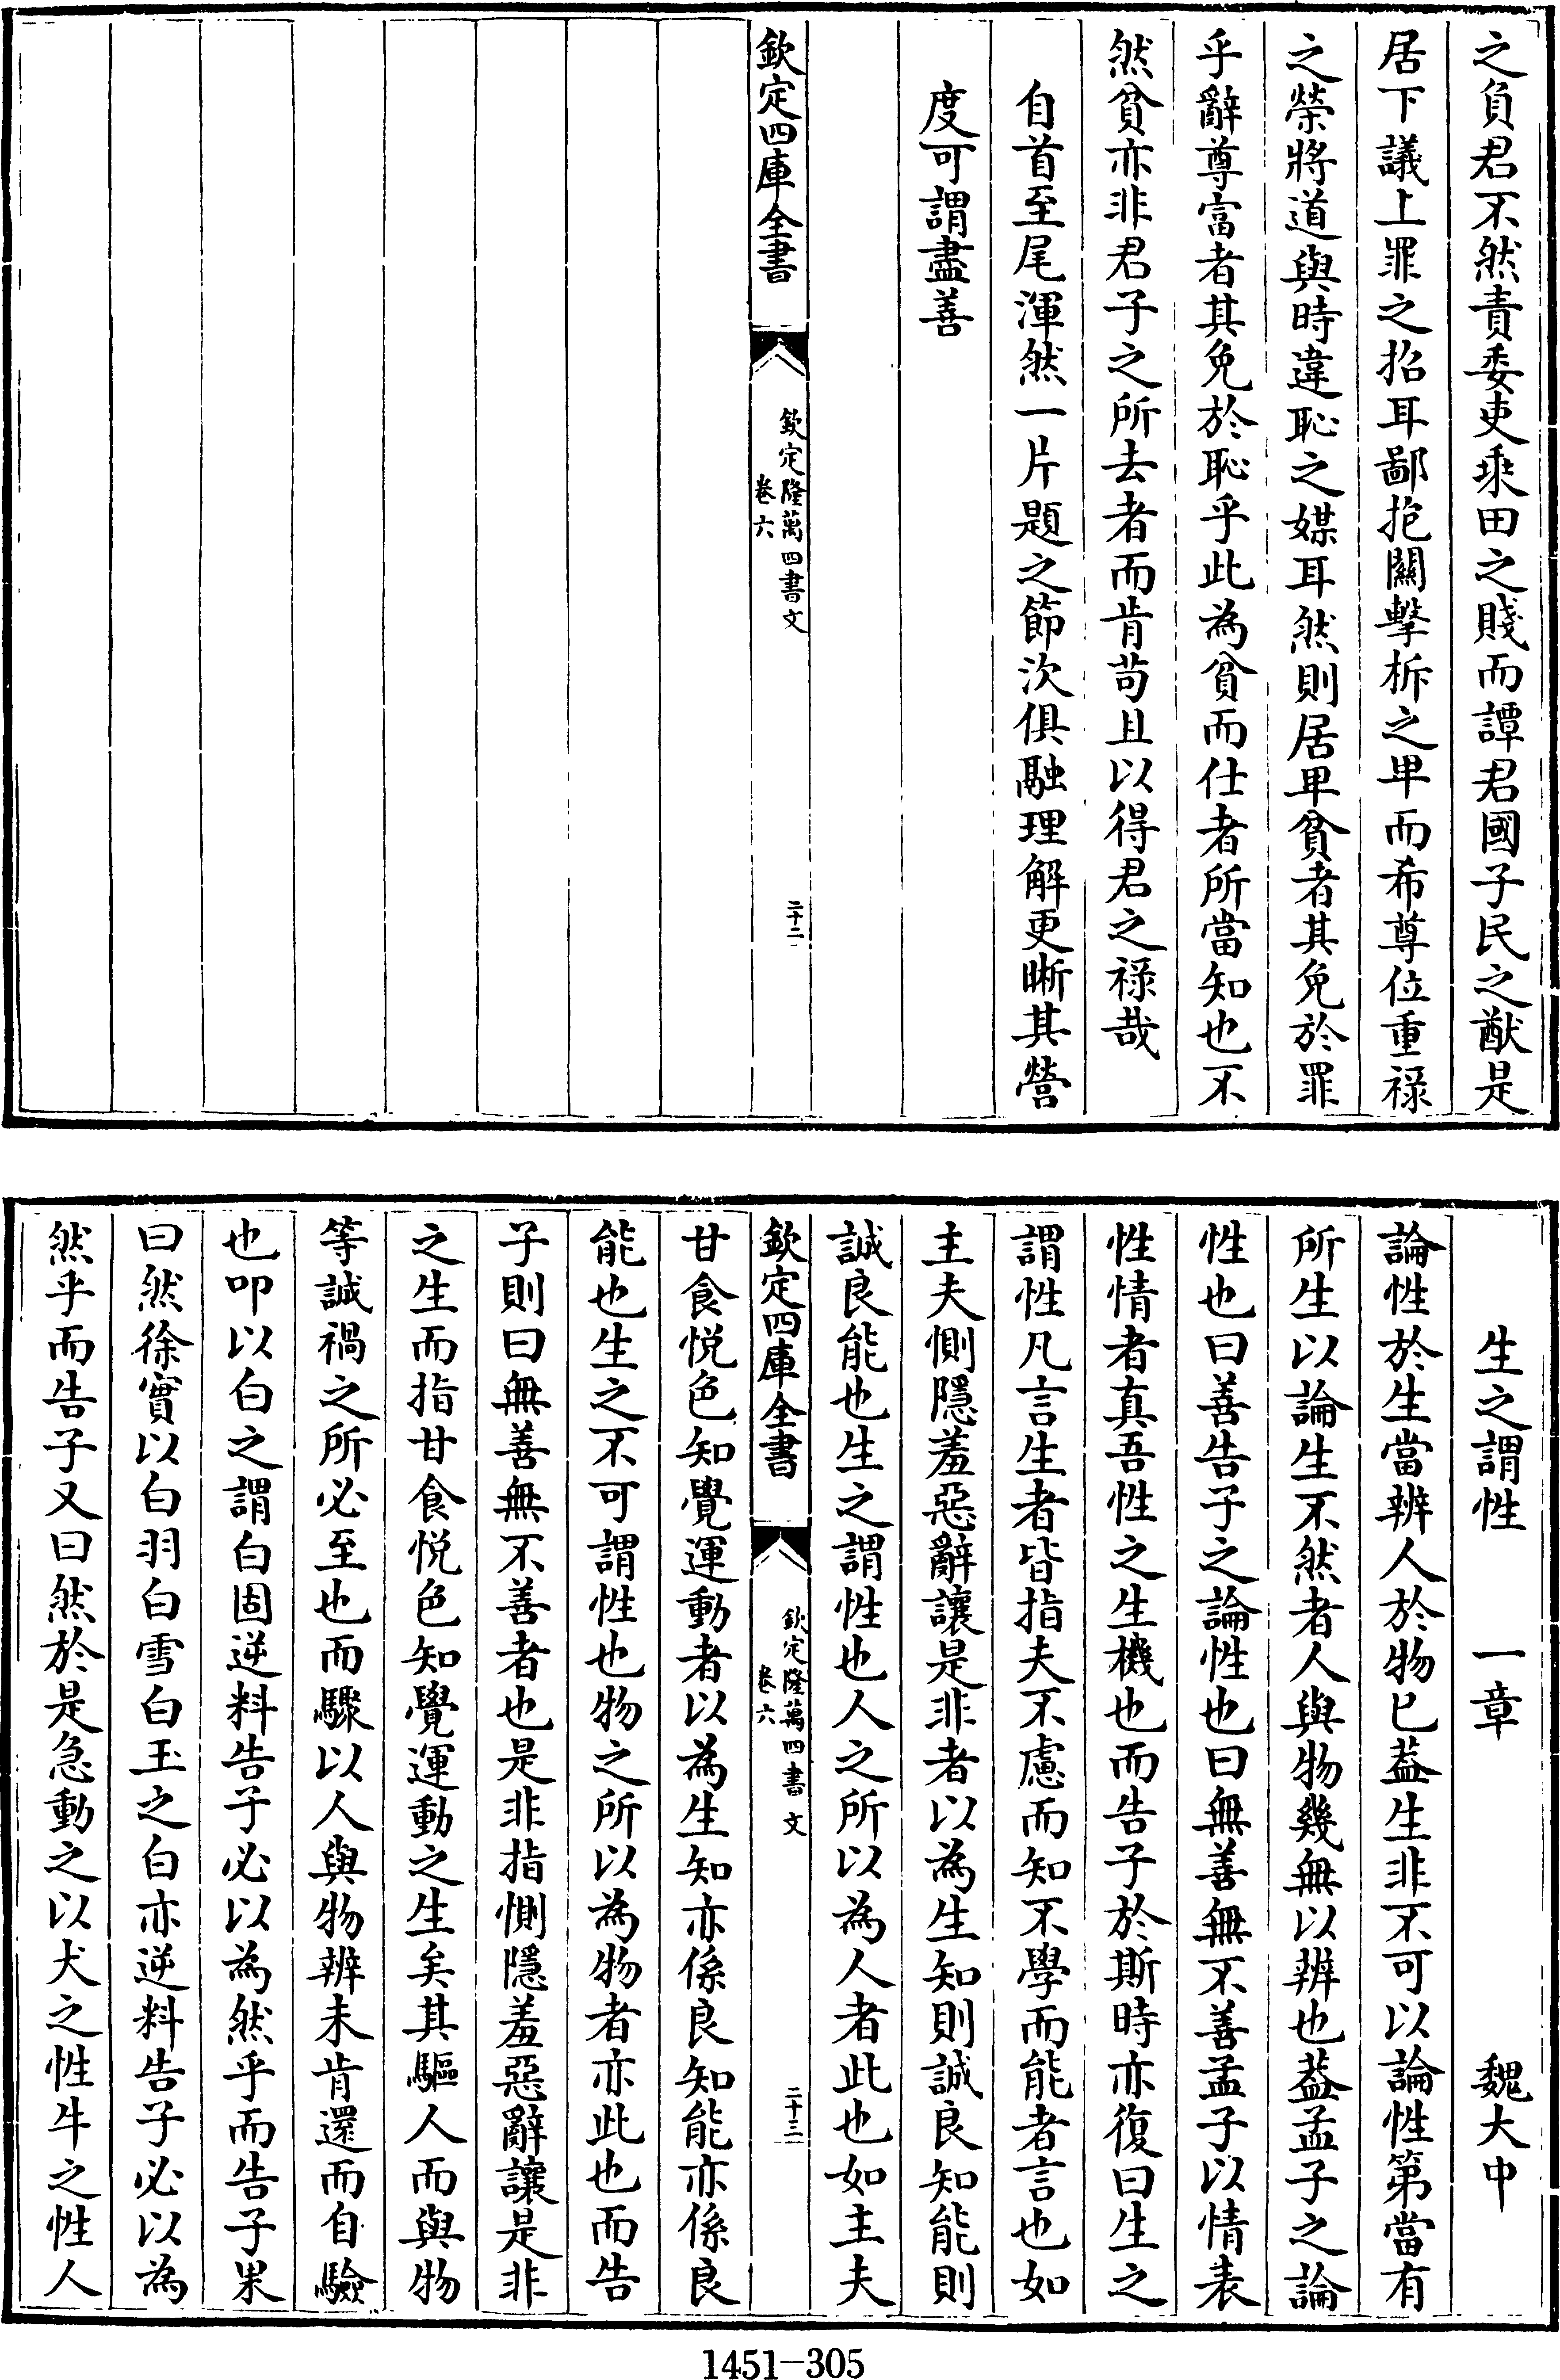 之負君不然責委吏乘田之賤而譚君國子民之猷是
居下議上罪之招耳鄙抱關擊柝之卑而希尊位重祿
之榮將道與時違恥之媒耳然則居卑貧者其免於罪
乎辭尊富者其免於恥乎此為貧而仕者所當知也不
然貧亦非君子之所去者而肯茍且以得君之祿哉
自首至尾渾然一片題之節次俱融理解更晰其營
度可謂盡善
欽定四庫全書
欽定隆萬四書文
卷六
二十二
生之謂性 一章 魏大中
論性於生當辨人於物已葢生非不可以論性第當有
所生以論生不然者人與物幾無以辨也葢孟子之論
性也曰善告子之論性也曰無善無不善孟子以情表
性情者真吾性之生機也而告子於斯時亦復曰生之
謂性凡言生者皆指夫不慮而知不學而能者言也如
主夫惻隱羞惡辭讓是非者以為生知則誠良知能則
誠良能也生之謂性也人之所以為人者此也如主夫
欽定四庫全書
欽定隆萬四書文
卷六
二十三
甘食悅色知覺運動者以為生知亦係良知能亦係良
能也生之不可謂性也物之所以為物者亦此也而告
子則曰無善無不善者也是非指惻隱羞惡辭讓是非
之生而指甘食悅色知覺運動之生矣其驅人而與物
等誠禍之所必至也而驟以人與物辨未肯還而自驗
也叩以白之謂白固逆料告子必以為然乎而告子果
曰然徐實以白羽白雪白玉之白亦逆料告子必以為
然乎而告子又曰然於是急動之以犬之性牛之性人
1451-305